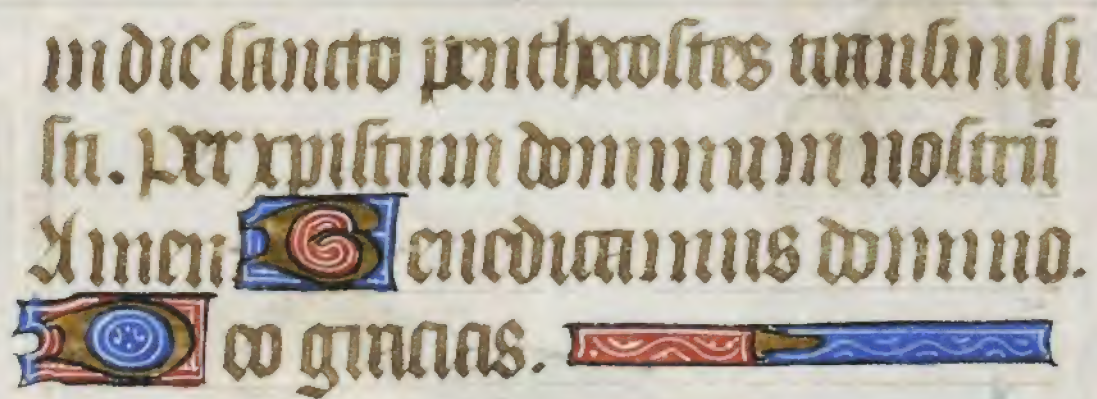 in die sancto penthecostes transmisi
sti. Per xpistum dominum nostrū
Amen Benedicamus domino.
Deo gracias.